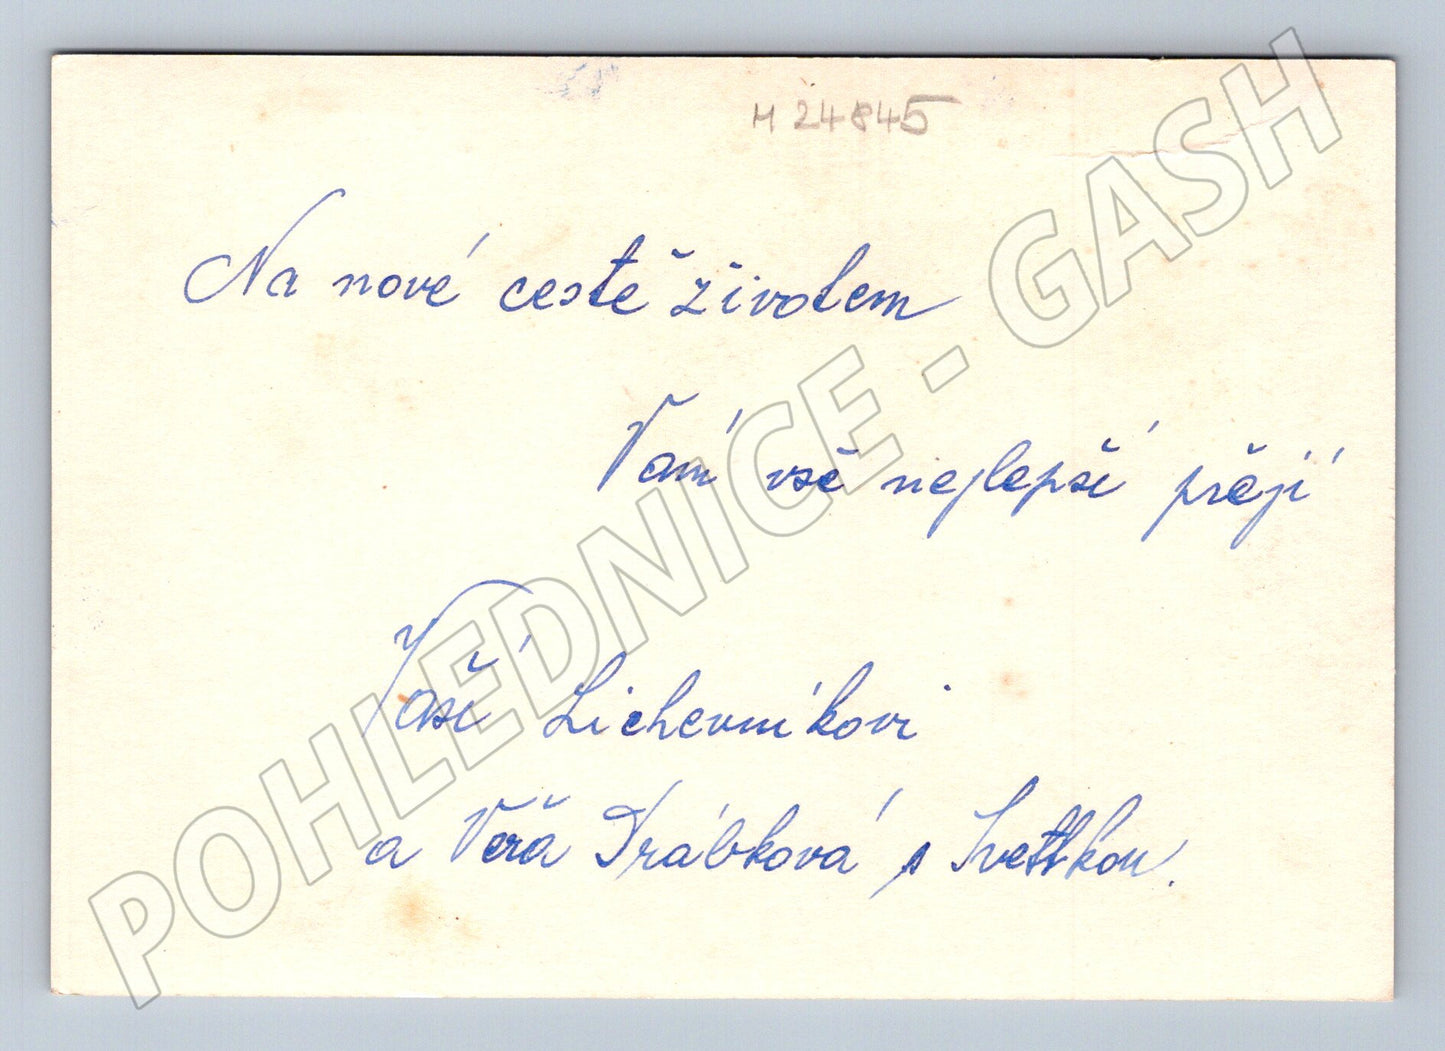 M 24845
Na nové cestě životem
Vám vše nejlepší přejí
Vaši Lichevníkovi
a Věra Drábková s Světlkou.
POHLEDNICE - GASH